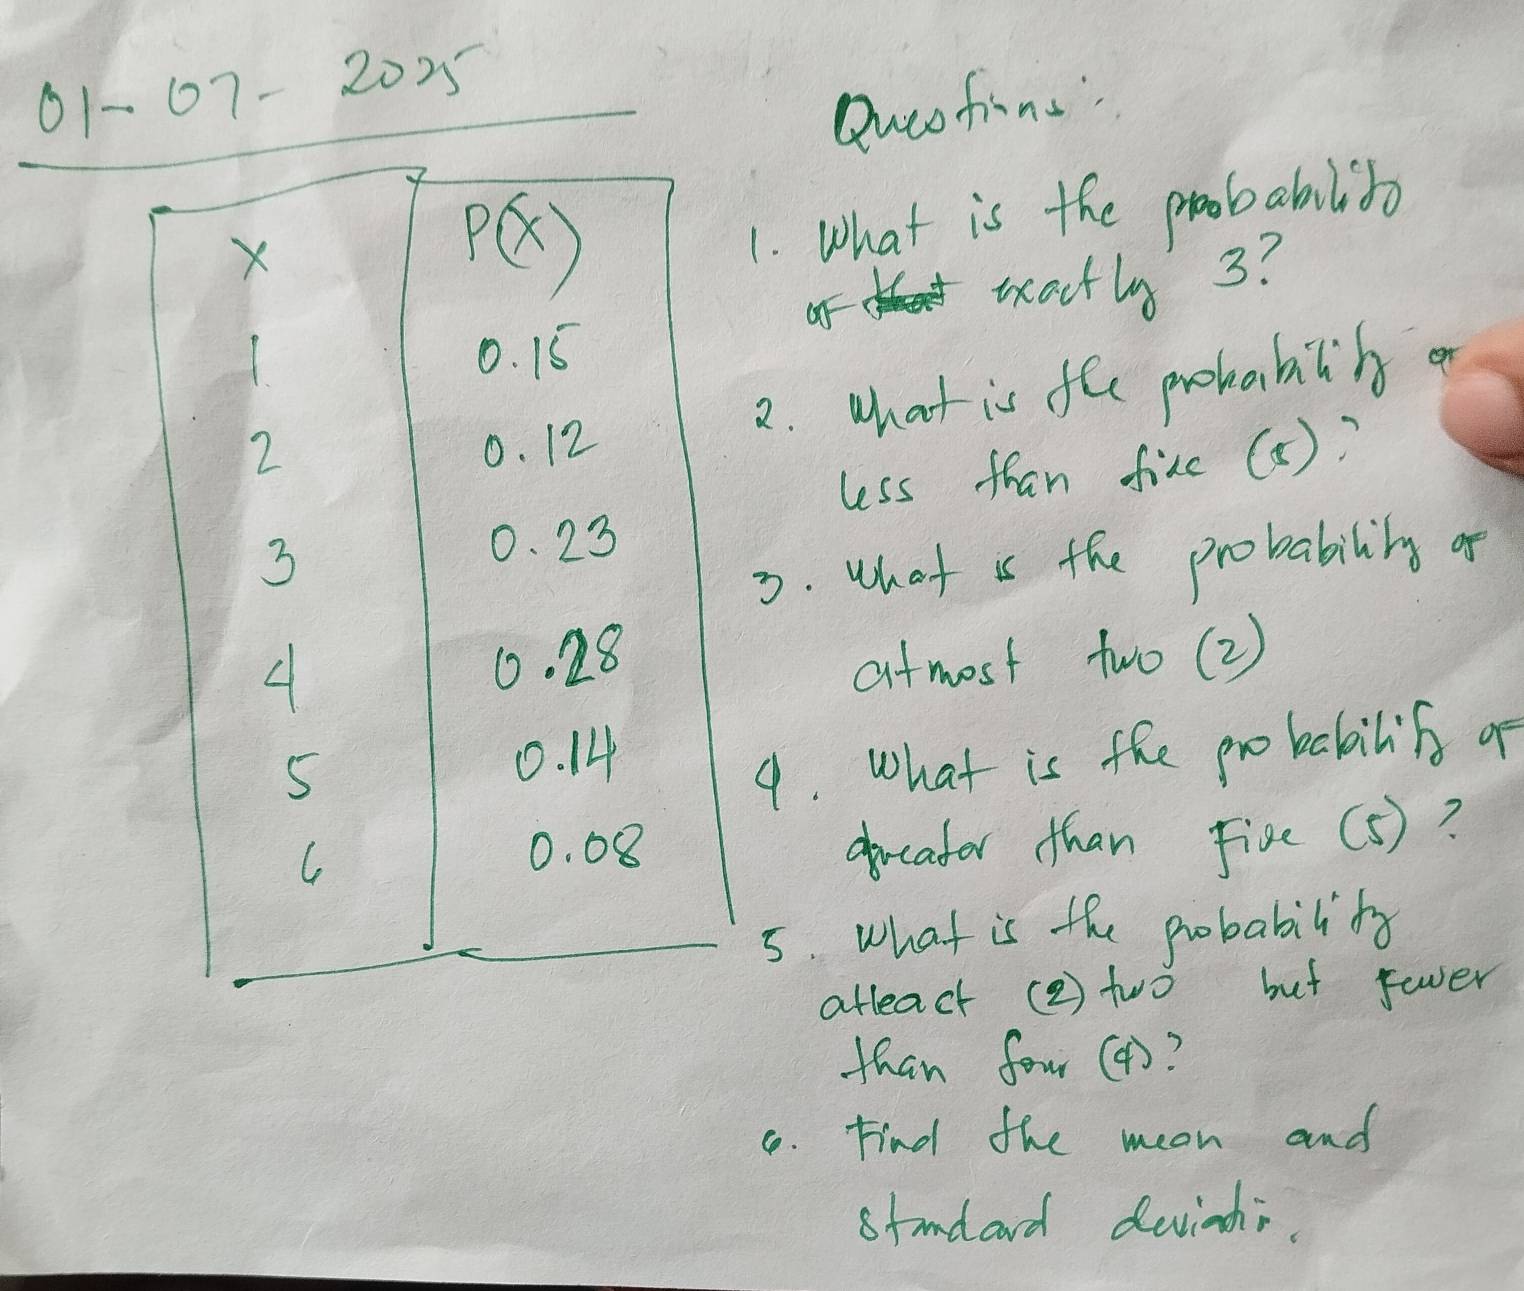 01-07-2025
X P(X)
1 0.15
2 0.12
3 0.23
4 0.28
5 0.14
6 0.08
Questions:
1. What is the probability
of exactly 3?
2. What is the probability of
less than five (5)?
3. What is the probability of
atmost two (2)
4. What is the probability of
greater than Five (5)?
5. What is the probability
atleast (2) two but Fewer
than four (4)?
6. Find the mean and
standard deviatin.